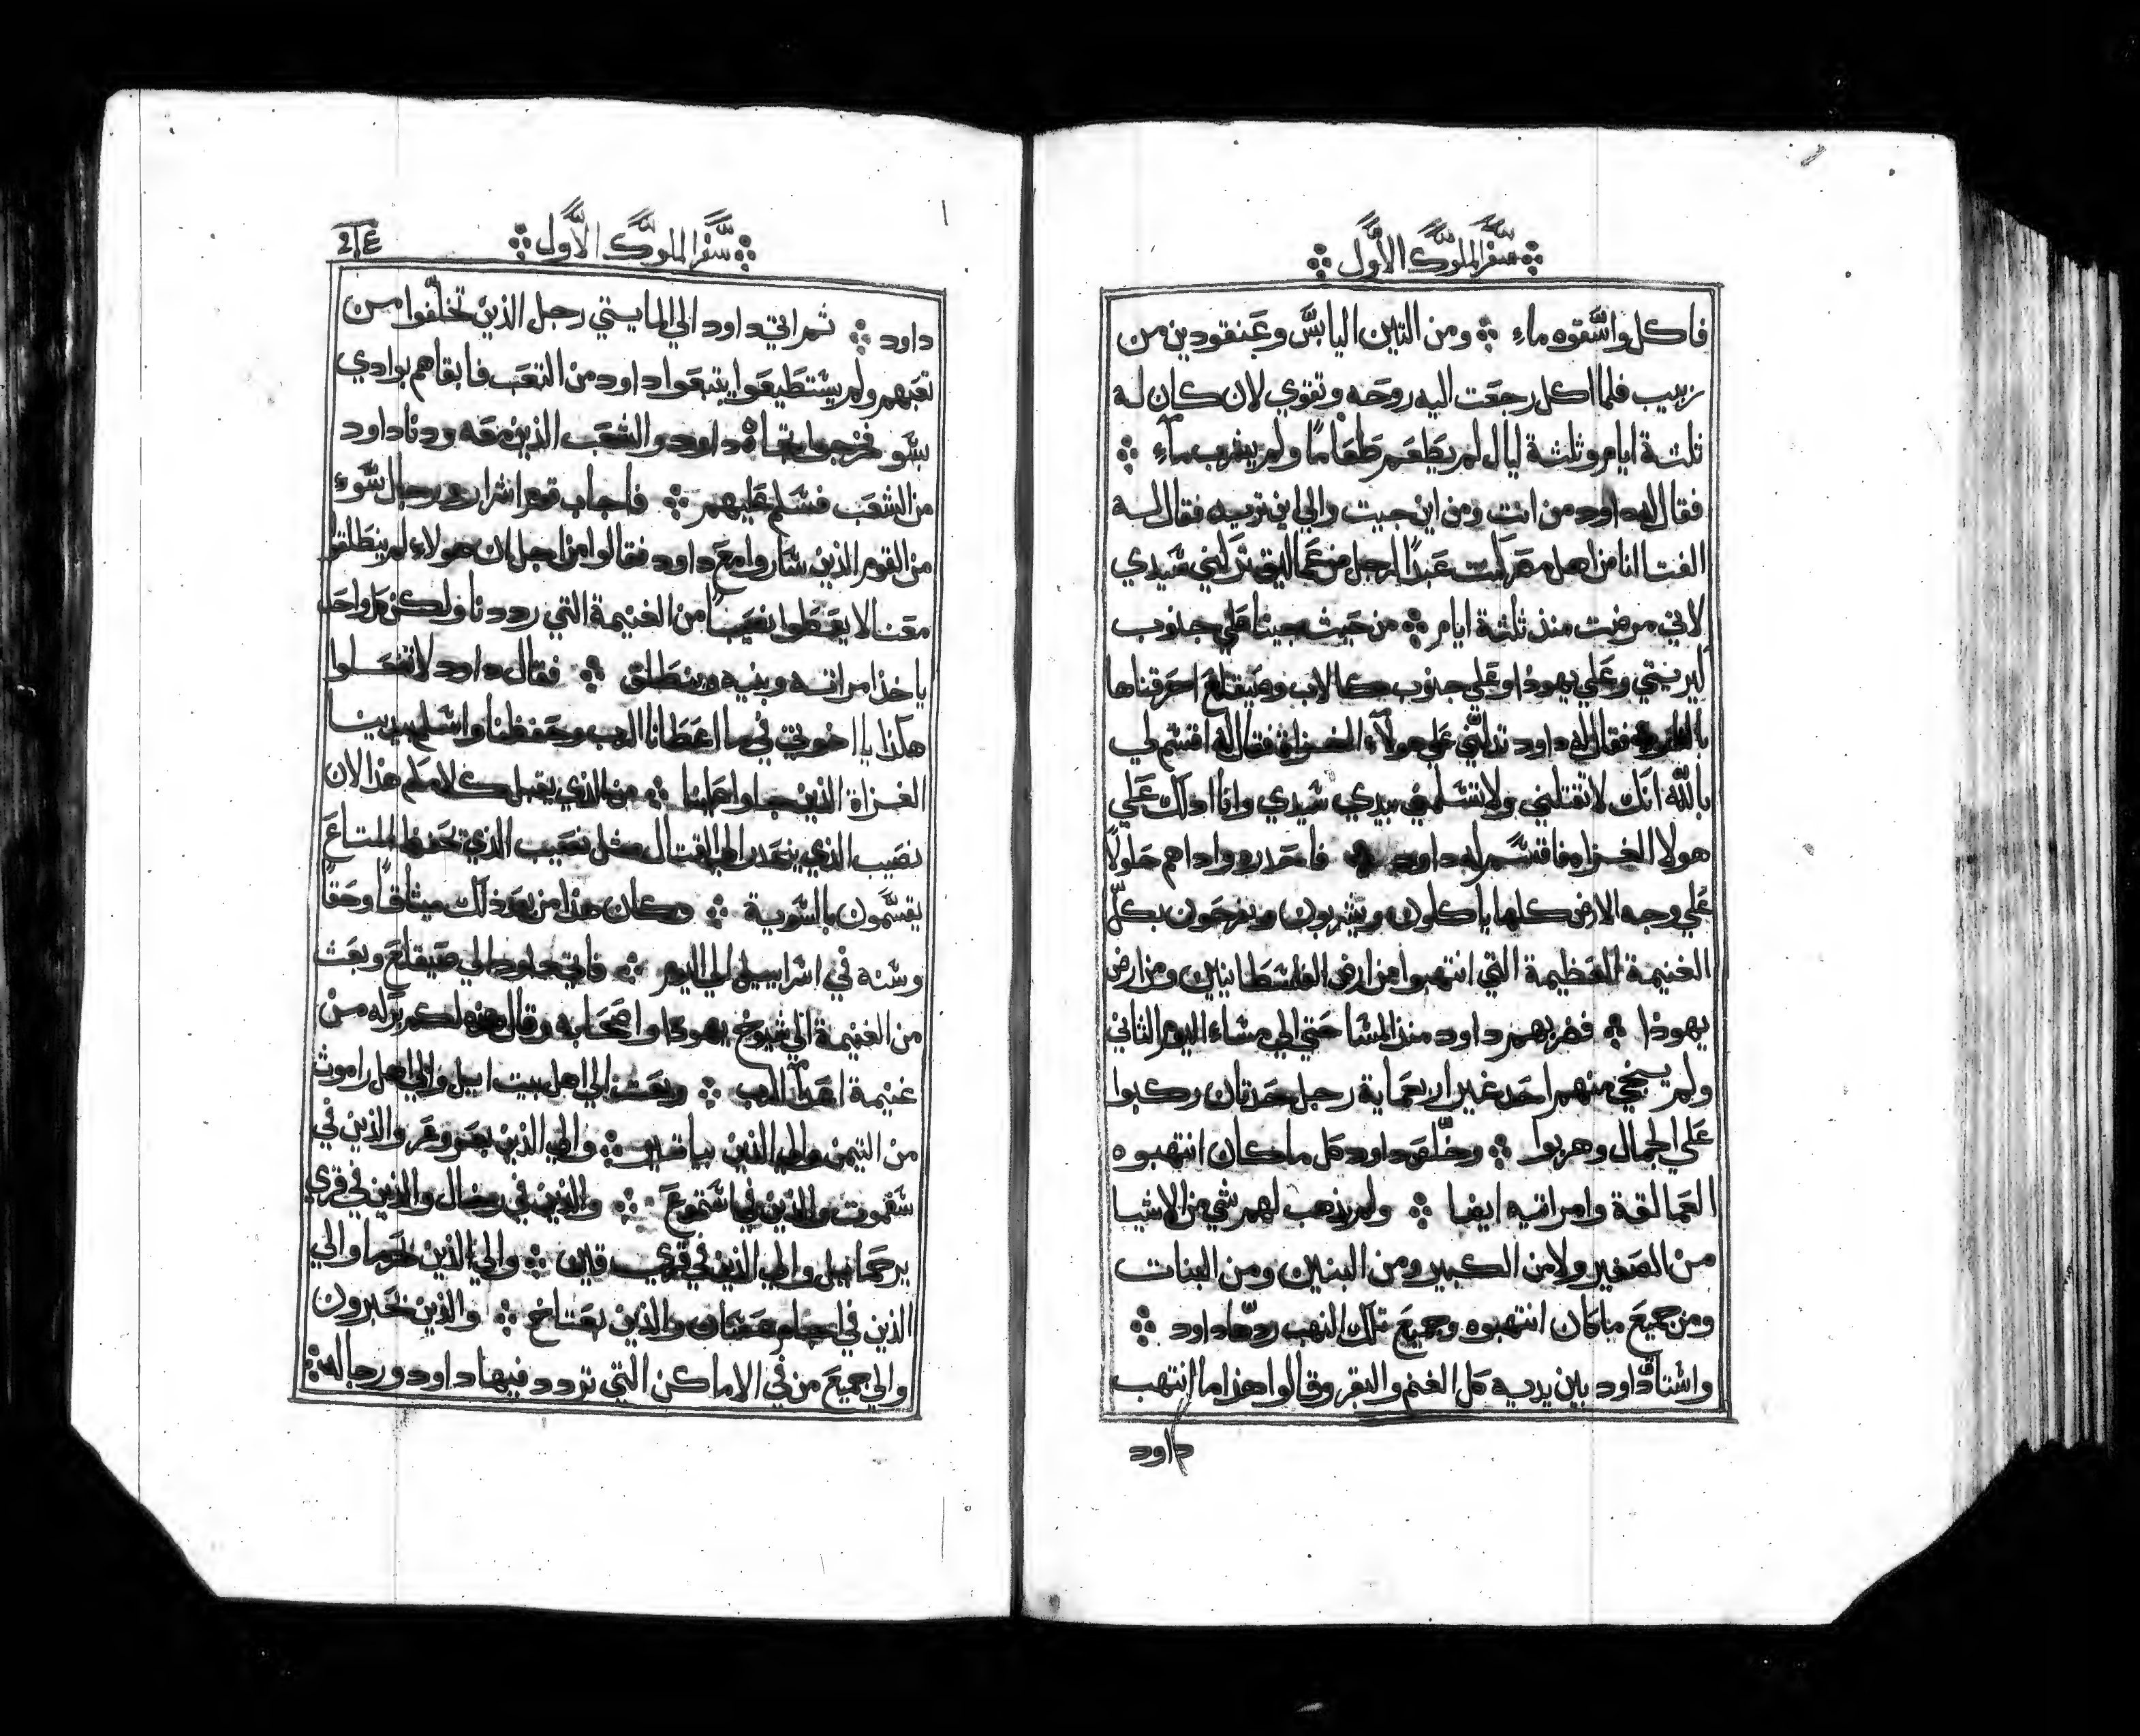 سفر الملوك الاول
فاكل واسقوه ماء ومن التين اليابس وعنقودين من
زبيب فلما اكل رجعت اليه روحه وتقوي لان كان له
ثلثة ايام وثلثة ليال لم يطعم طعامًا ولم يشرب ماء
فقال له داود من انت ومن اين جيت والي اين تريد فقال له
الفتا انا من اهل مصر كنت عبدًا لرجل من عماليق تركني سيدي
لاني مرضت منذ ثلثة ايام من حيث جينا علي جنوب
كيريتي وعلي يهودا وعلي جنوب كالاب وصيقلاغ احرقناها
فقال له داود تدلني علي هولاء الغزاة فقال له اقسم لي
بالله انك لا تقتلني ولا تسلمني بيدي سيدي وانا ادلك علي
هولا الغزاه فاقسم له داود فاحدره واداهم حلولًا
علي وجه الارض كلها ياكلون ويشربون ويفرحون بكل
الغنيمة العظيمة التي انتهبوا من ارض الفلسطانيين ومن ارض
يهودا فضربهم داود منذ المسا حتي الي مساء اليوم الثاني
ولم ينجي منهم احد غير اربعماية رجل حدثان ركبوا
علي الجمال وهربوا وخلص داود كل ما كان انتهبوه
العمالقة وامراتيه ايضا ولم يذهب لهم شي من الاشيا
من الصغير ولا من الكبير ومن البنين ومن البنات
ومن جميع ما كان انتهبوه وجميع تلك النهب ردها داود
واستاق داود بين يديه كل الغنم والبقر وقالوا هذا ما انتهب
داود
سفر الملوك الاول
داود ثم اتي داود الي المايتي رجل الذين تخلفوا من
تعبهم ولم يستطيعوا يتبعوا داود من التعب فابقاهم بوادي
بسو فخرجوا تلقاه داود والشعب الذين معه ودنا داود
من الشعب فسلم عليهم فاجاب قوم اشرار رجال سوء
من القوم الذين ساروا مع داود فقالوا من اجل ان هولاء لم ينطلقوا
معنا لا يعطوا نصيبًا من الغنيمة التي رددنا ولكن كل واحد
ياخذ امراته وبنيه وينطلق فقال داود لا تفعلوا
هكذا يا اخوتي في ما اعطانا الرب وحفظنا واسلم بيدينا
الغزاة الذين جاوا علينا من الذي يقبل كلامكم هذا لان
نصيب الذي ينحدر الي القتال مثل نصيب الذي يحفظ المتاع
يقسمون بالسوية وكان هذا من بعد ذلك ميثاقًا وحقًا
وسنه في اسراييل الي اليوم فاتي داود الي صيقلاغ وبعث
من الغنيمة الي شيوخ يهودا واصحابه وقال هذه لكم بركه من
غنيمة اعدآ الرب وبعث الي اهل بيت ايل والي اهل راموث
من التيمن والي الذين بياتير والي الذين بعروعر والذين في
سفموت والذين في اشتموع والذين في رخال والذين في قري
يرحماييل والي الذين في قري قاين والي الذين حرما والي
الذين في عشان والذين بعتاخ والذين بحبرون
والي جميع من في الاماكن التي تردد فيها داود ورجاله